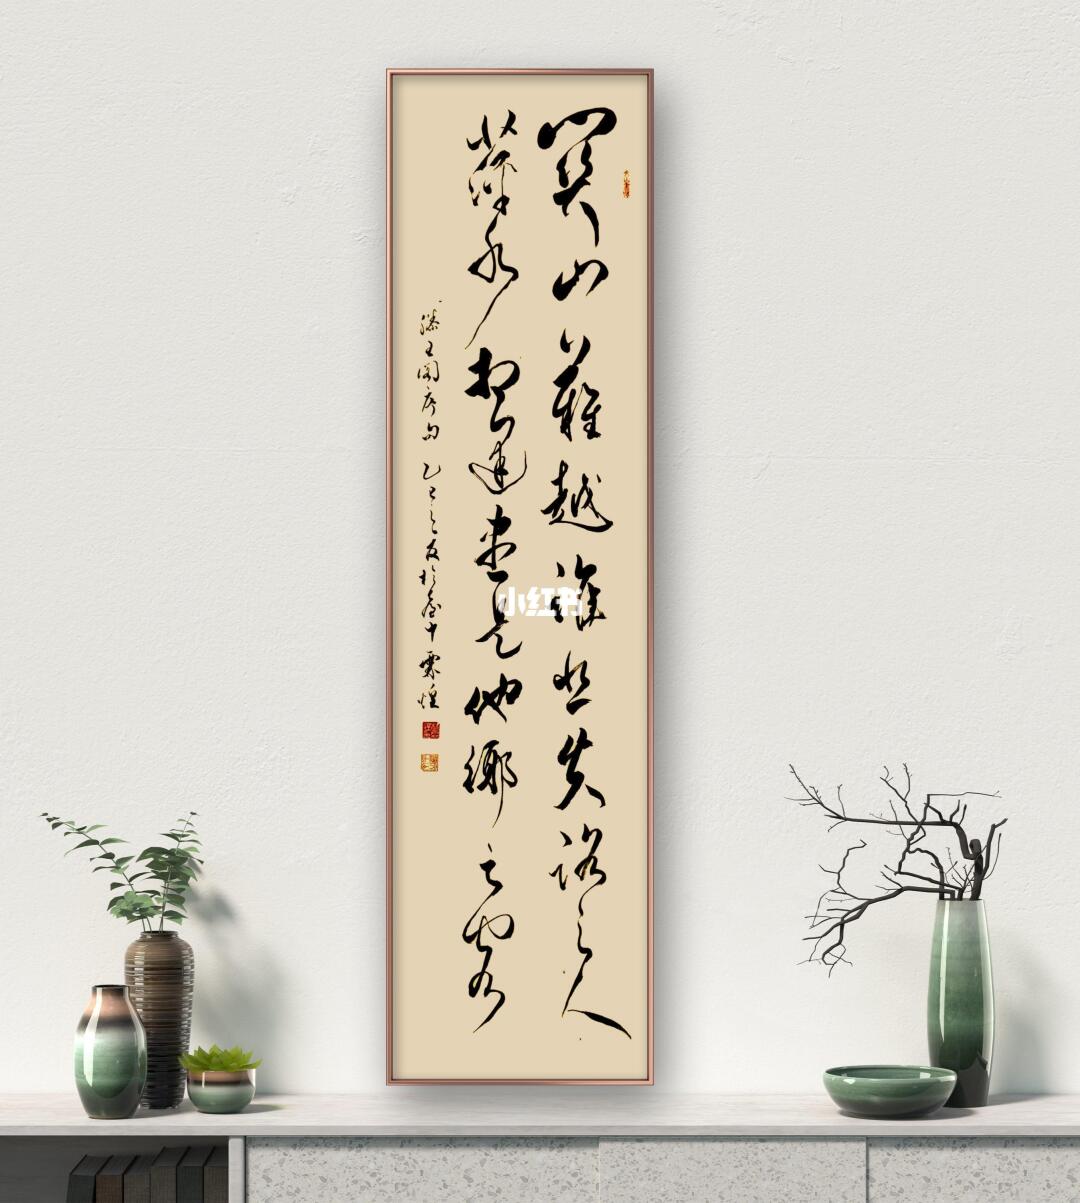 關山難越誰悲失路之人
萍水相逢盡是他鄉之客
滕王閣序句 乙巳之夜於臺中 霖煌
小红书